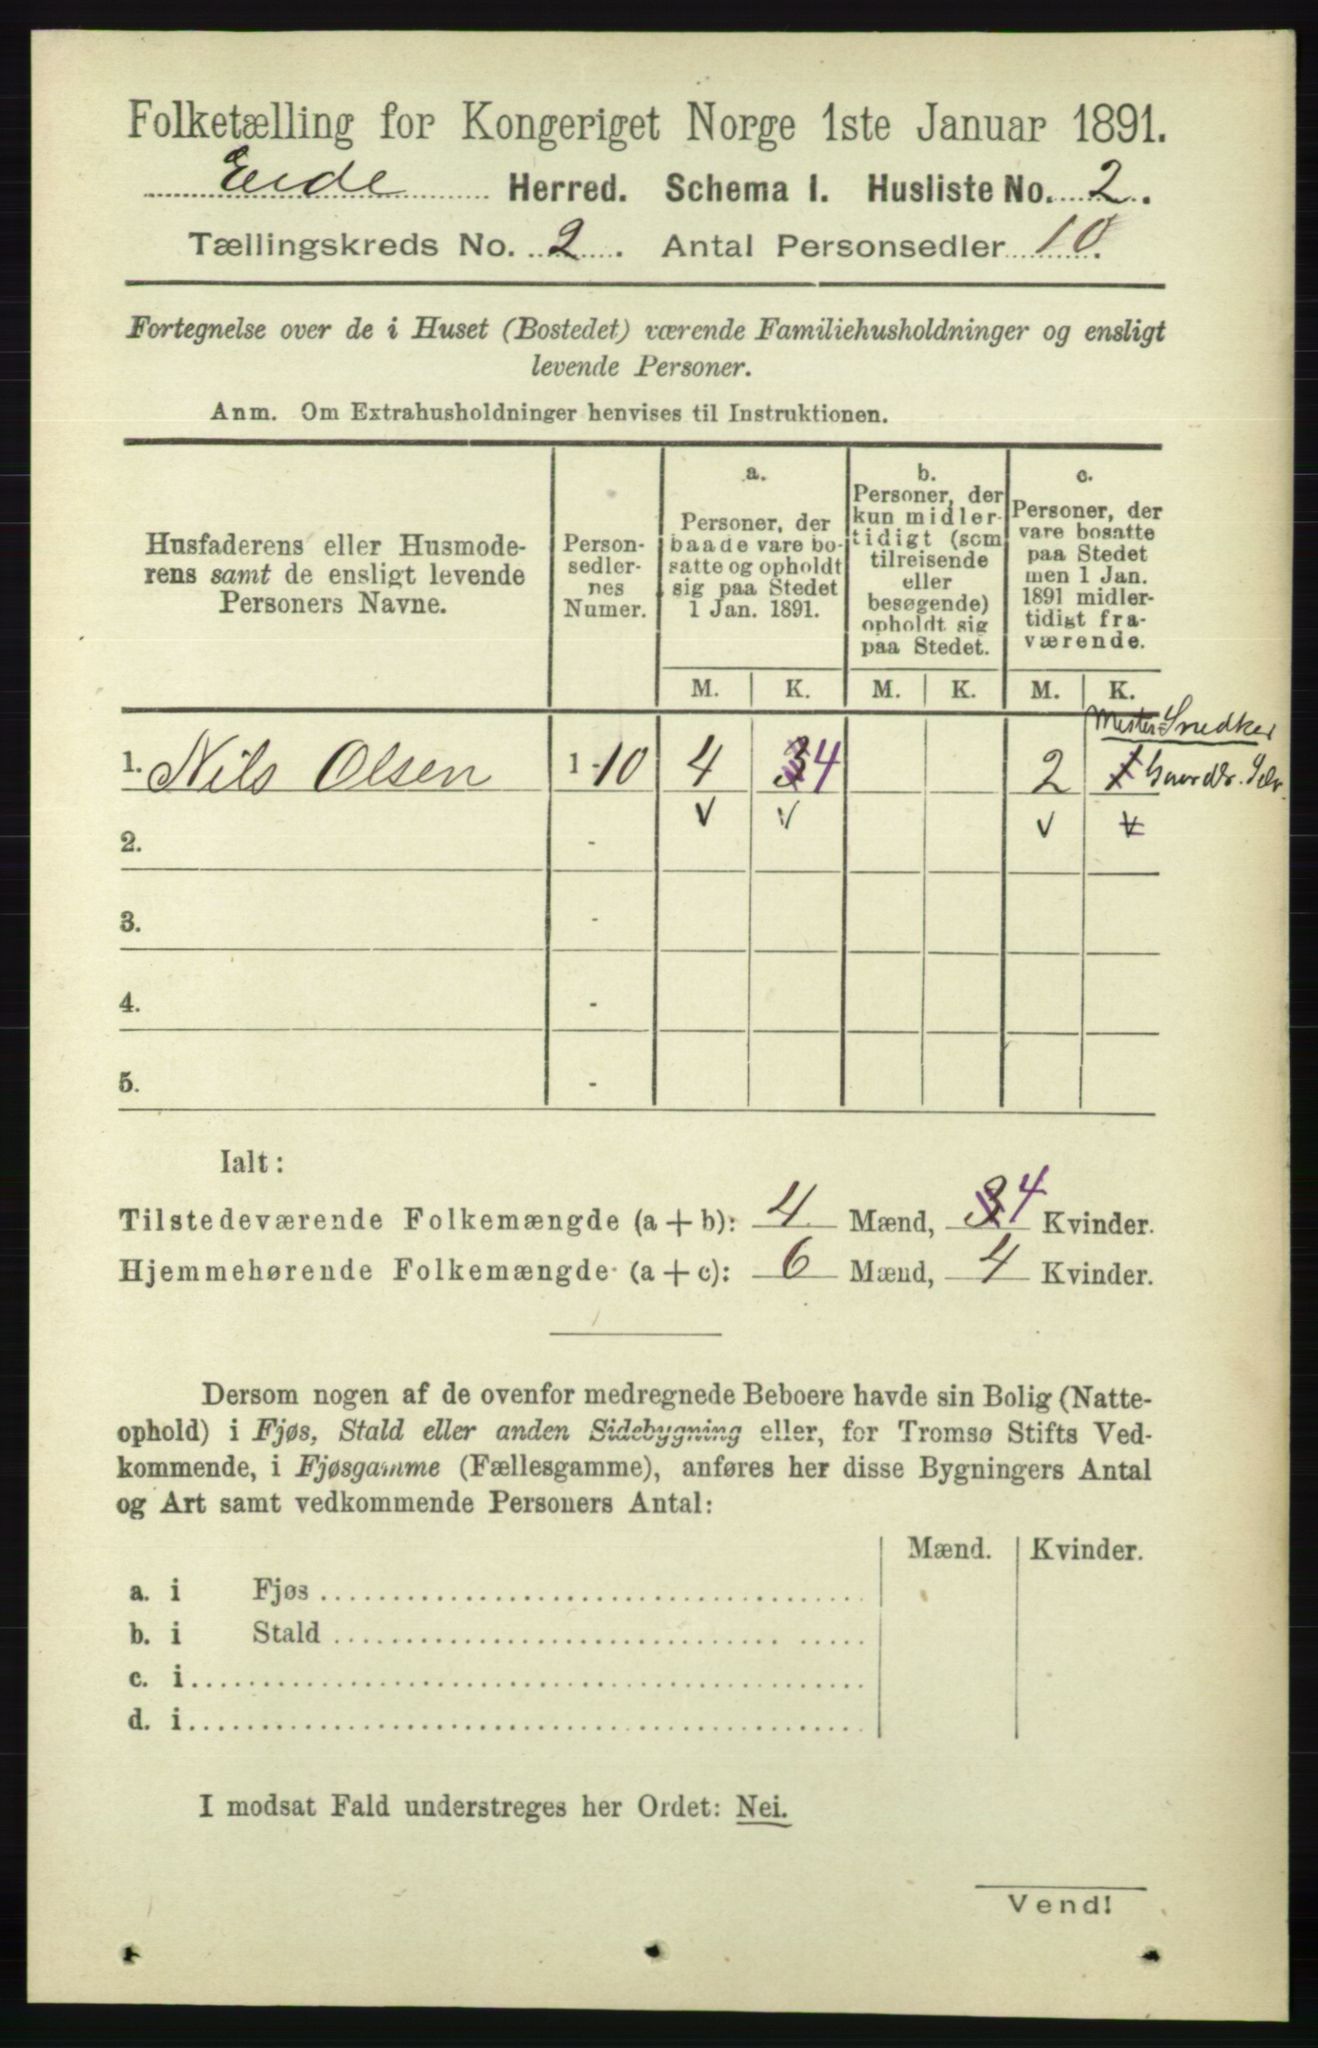 Folketælling for Kongeriget Norge 1ste Januar 1891.
Eide Herred. Schema I. Husliste No. 2.
Tællingskreds No. 2. Antal Personsedler 10.
Fortegnelse over de i Huset (Bostedet) værende Familiehusholdninger og ensligt
levende Personer.
Anm. Om Extrahusholdninger henvises til Instruktionen.
Husfaderens eller Husmode-
rens samt de ensligt levende
Personers Navne.
Person-
sedler-
nes
Numer.
a.
Personer, der
baade vare bo-
satte og opholdt
sig paa Stedet
1 Jan. 1891.
b.
Personer, der
kun midler-
tidigt (som
tilreisende
eller
besøgende)
opholdt sig
paa Stedet.
c.
Personer, der
vare bosatte
paa Stedet
men 1 Jan.
1891 midler-
tidigt fra-
værende.
M. K. M. K. M. K.
Mester Snedker
1. Nils Olsen 1-10 4 3 4 2 1 Gaardbr. Selv.
2. -
3. -
4. -
5. -
Ialt:
Tilstedeværende Folkemængde (a + b): 4 Mænd, 3 4 Kvinder.
Hjemmehørende Folkemængde (a + c): 6 Mænd, 4 Kvinder.
Dersom nogen af de ovenfor medregnede Beboere havde sin Bolig (Natte-
ophold) i Fjøs, Stald eller anden Sidebygning eller, for Tromsø Stifts Ved-
kommende, i Fjøsgamme (Fællesgamme), anføres her disse Bygningers Antal
og Art samt vedkommende Personers Antal:
Mænd. Kvinder.
a. i Fjøs
b. i Stald
c. i
d. i
I modsat Fald understreges her Ordet: Nei.
Vend!